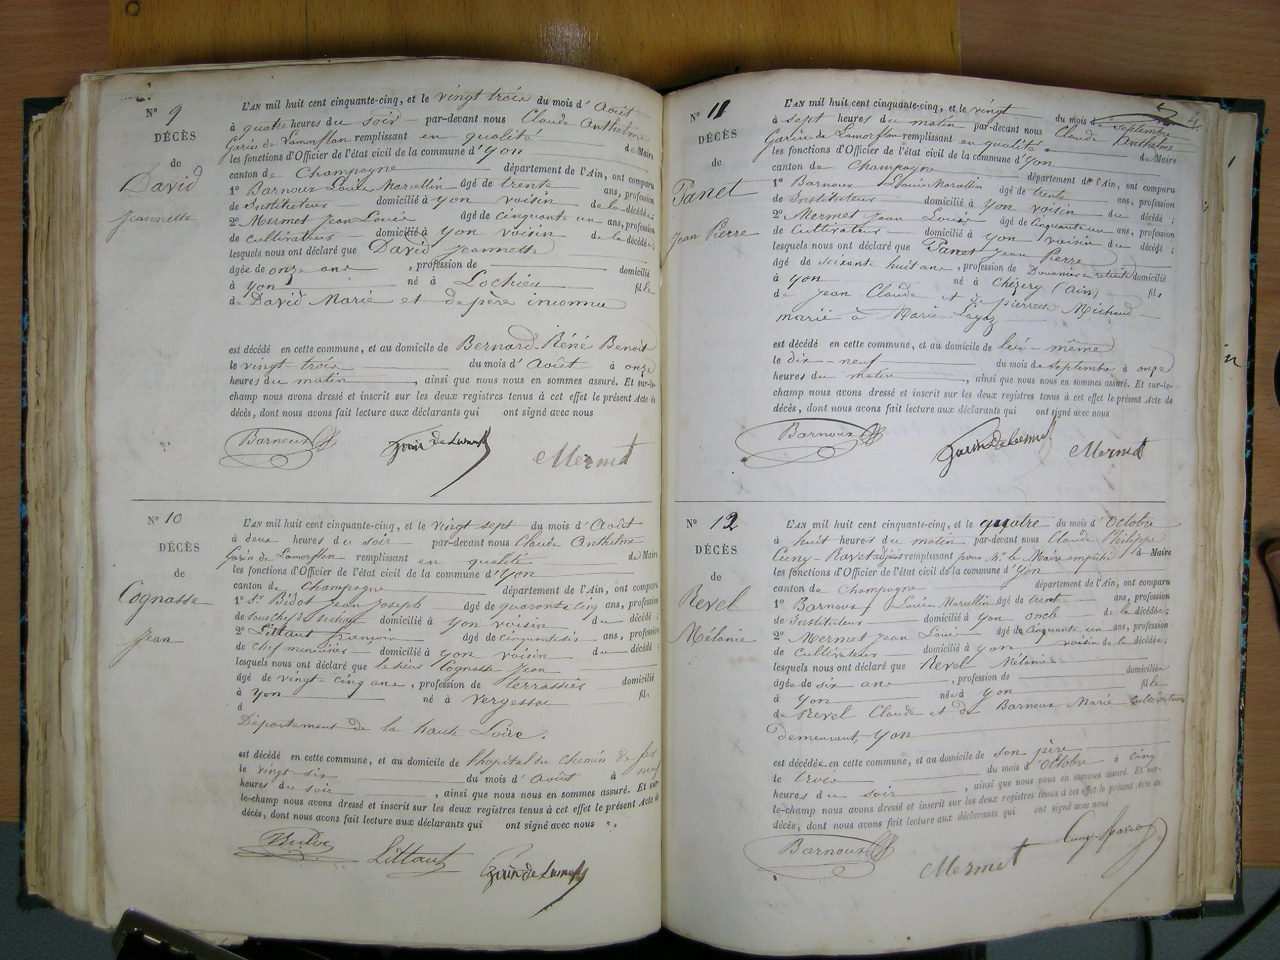 N° 9
DÉCÈS
de
David
Jeannette
L'AN mil huit cent cinquante-cinq, et le vingt trois du mois d'Août
à quatre heures du soir par-devant nous Claude Anthelme
Garin de Lamorflan remplissant en qualité de Maire
les fonctions d'Officier de l'état civil de la commune d'Yon
canton de Champagne département de l'Ain, ont comparu
1° Barnoux Louis Marcellin âgé de trente ans, profession
de Instituteur domicilié à Yon voisin de la décédée;
2° Mermet Jean Louis âgé de cinquante un ans, profession
de cultivateur domicilié à Yon voisin de la décédée
lesquels nous ont déclaré que David Jeannette
âgée de onze ans, profession de domicilié
à Yon né à Lochieu fille
de David Marie et de père inconnu
est décédé en cette commune, et au domicile de Bernard Réné Benoit
le vingt trois du mois d'Août à onze
heures du matin, ainsi que nous nous en sommes assuré. Et sur-le-
champ nous avons dressé et inscrit sur les deux registres tenus à cet effet le présent Acte de
décès, dont nous avons fait lecture aux déclarants qui ont signé avec nous
Barnoux Mermet
N° 10
DÉCÈS
de
Cognasse
Jean
L'AN mil huit cent cinquante-cinq, et le vingt sept du mois d'Août
à deux heures du soir par-devant nous Claude Anthelme
Garin de Lamorflan remplissant en qualité de Maire
les fonctions d'Officier de l'état civil de la commune d'Yon
canton de Champagne département de l'Ain, ont comparu
1° Jean Joseph âgé de quarante cinq ans, profession
de domicilié à Yon voisin du décédé
2° Littaut François âgé de cinquante six ans, profession
de chef mineur domicilié à Yon voisin du décédé
lesquels nous ont déclaré que le sieur Cognasse Jean
âgé de vingt cinq ans, profession de terrassier domicilié
à Yon né à Vergessac fils
d
Département de la haute Loire.
est décédé en cette commune, et au domicile de l'hopital du chemin de fer
le vingt six du mois d'Août à neuf
heures du soir, ainsi que nous nous en sommes assuré. Et sur
le-champ nous avons dressé et inscrit sur les deux registres tenus à cet effet le présent Acte de
décès, dont nous avons fait lecture aux déclarants qui ont signé avec nous
Littaut
N° 11
DÉCÈS
de
Panet
Jean Pierre
L'AN mil huit cent cinquante-cinq, et le vingt du mois de Septembre
à sept heures du matin par-devant nous Claude Anthelme
Garin de Lamorflan remplissant en qualité de Maire
les fonctions d'Officier de l'état civil de la commune d'Yon
canton de Champagne département de l'Ain, ont comparu
1° Barnoux Louis Marcellin âgé de trente ans, profession
de Instituteur domicilié à Yon voisin du décédé;
2° Mermet Jean Louis âgé de cinquante un ans, profession
de cultivateur domicilié à Yon voisin du décédé;
lesquels nous ont déclaré que Panet Jean Pierre
âgé de soixante huit ans, profession de Douanier retraité domicilié
à Yon né à Chézery (Ain) fils
de Jean Claude et de pierrette Michaud
marié à Marie
est décédé en cette commune, et au domicile de lui-même
le dix-neuf du mois de Septembre à onze
heures du matin, ainsi que nous nous en sommes assuré. Et sur-le-
champ nous avons dressé et inscrit sur les deux registres tenus à cet effet le présent Acte de
décès, dont nous avons fait lecture aux déclarants qui ont signé avec nous
Barnoux Mermet
N° 12
DÉCÈS
de
Revel
Mélanie
L'AN mil huit cent cinquante-cinq, et le quatre du mois d'Octobre
à huit heures du matin par-devant nous Claude Philippe
Cuny-Ravet adjoint remplissant pour Mr le Maire empêché de Maire
les fonctions d'Officier de l'état civil de la commune d'Yon
canton de Champagne département de l'Ain, ont comparu
1° Barnoux Louis Marcellin âgé de trente ans, profession
de Instituteur domicilié à Yon oncle de la décédée;
2° Mermet Jean Louis âgé de cinquante un ans, profession
de cultivateur domicilié à Yon voisin de la décédée;
lesquels nous ont déclaré que Revel Mélanie
âgée de six ans, profession de domiciliée
à Yon née à Yon fille
de Revel Claude et de Barnoux Marie cultivateurs
demeurant, Yon
est décédée en cette commune, et au domicile de son père
le trois du mois d'Octobre à cinq
heures du soir, ainsi que nous nous en sommes assuré. Et sur-
le-champ nous avons dressé et inscrit sur les deux registres tenus à cet effet le présent Acte de
décès, dont nous avons fait lecture aux déclarants qui ont signé avec nous
Barnoux Mermet